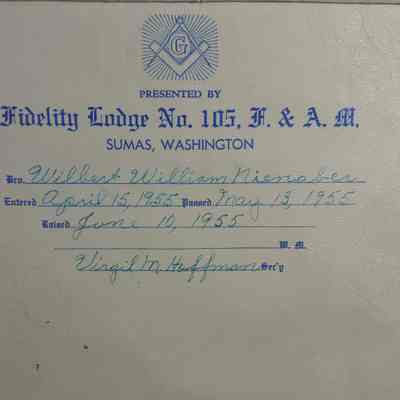 G
PRESENTED BY
Fidelity Lodge No. 105, F. & A. M.
SUMAS, WASHINGTON
Bro. Wilbert William Nienaber
Entered April 15, 1955 Passed May 13, 1955
Raised June 10, 1955
W. M.
Virgil M Huffman Sec'y